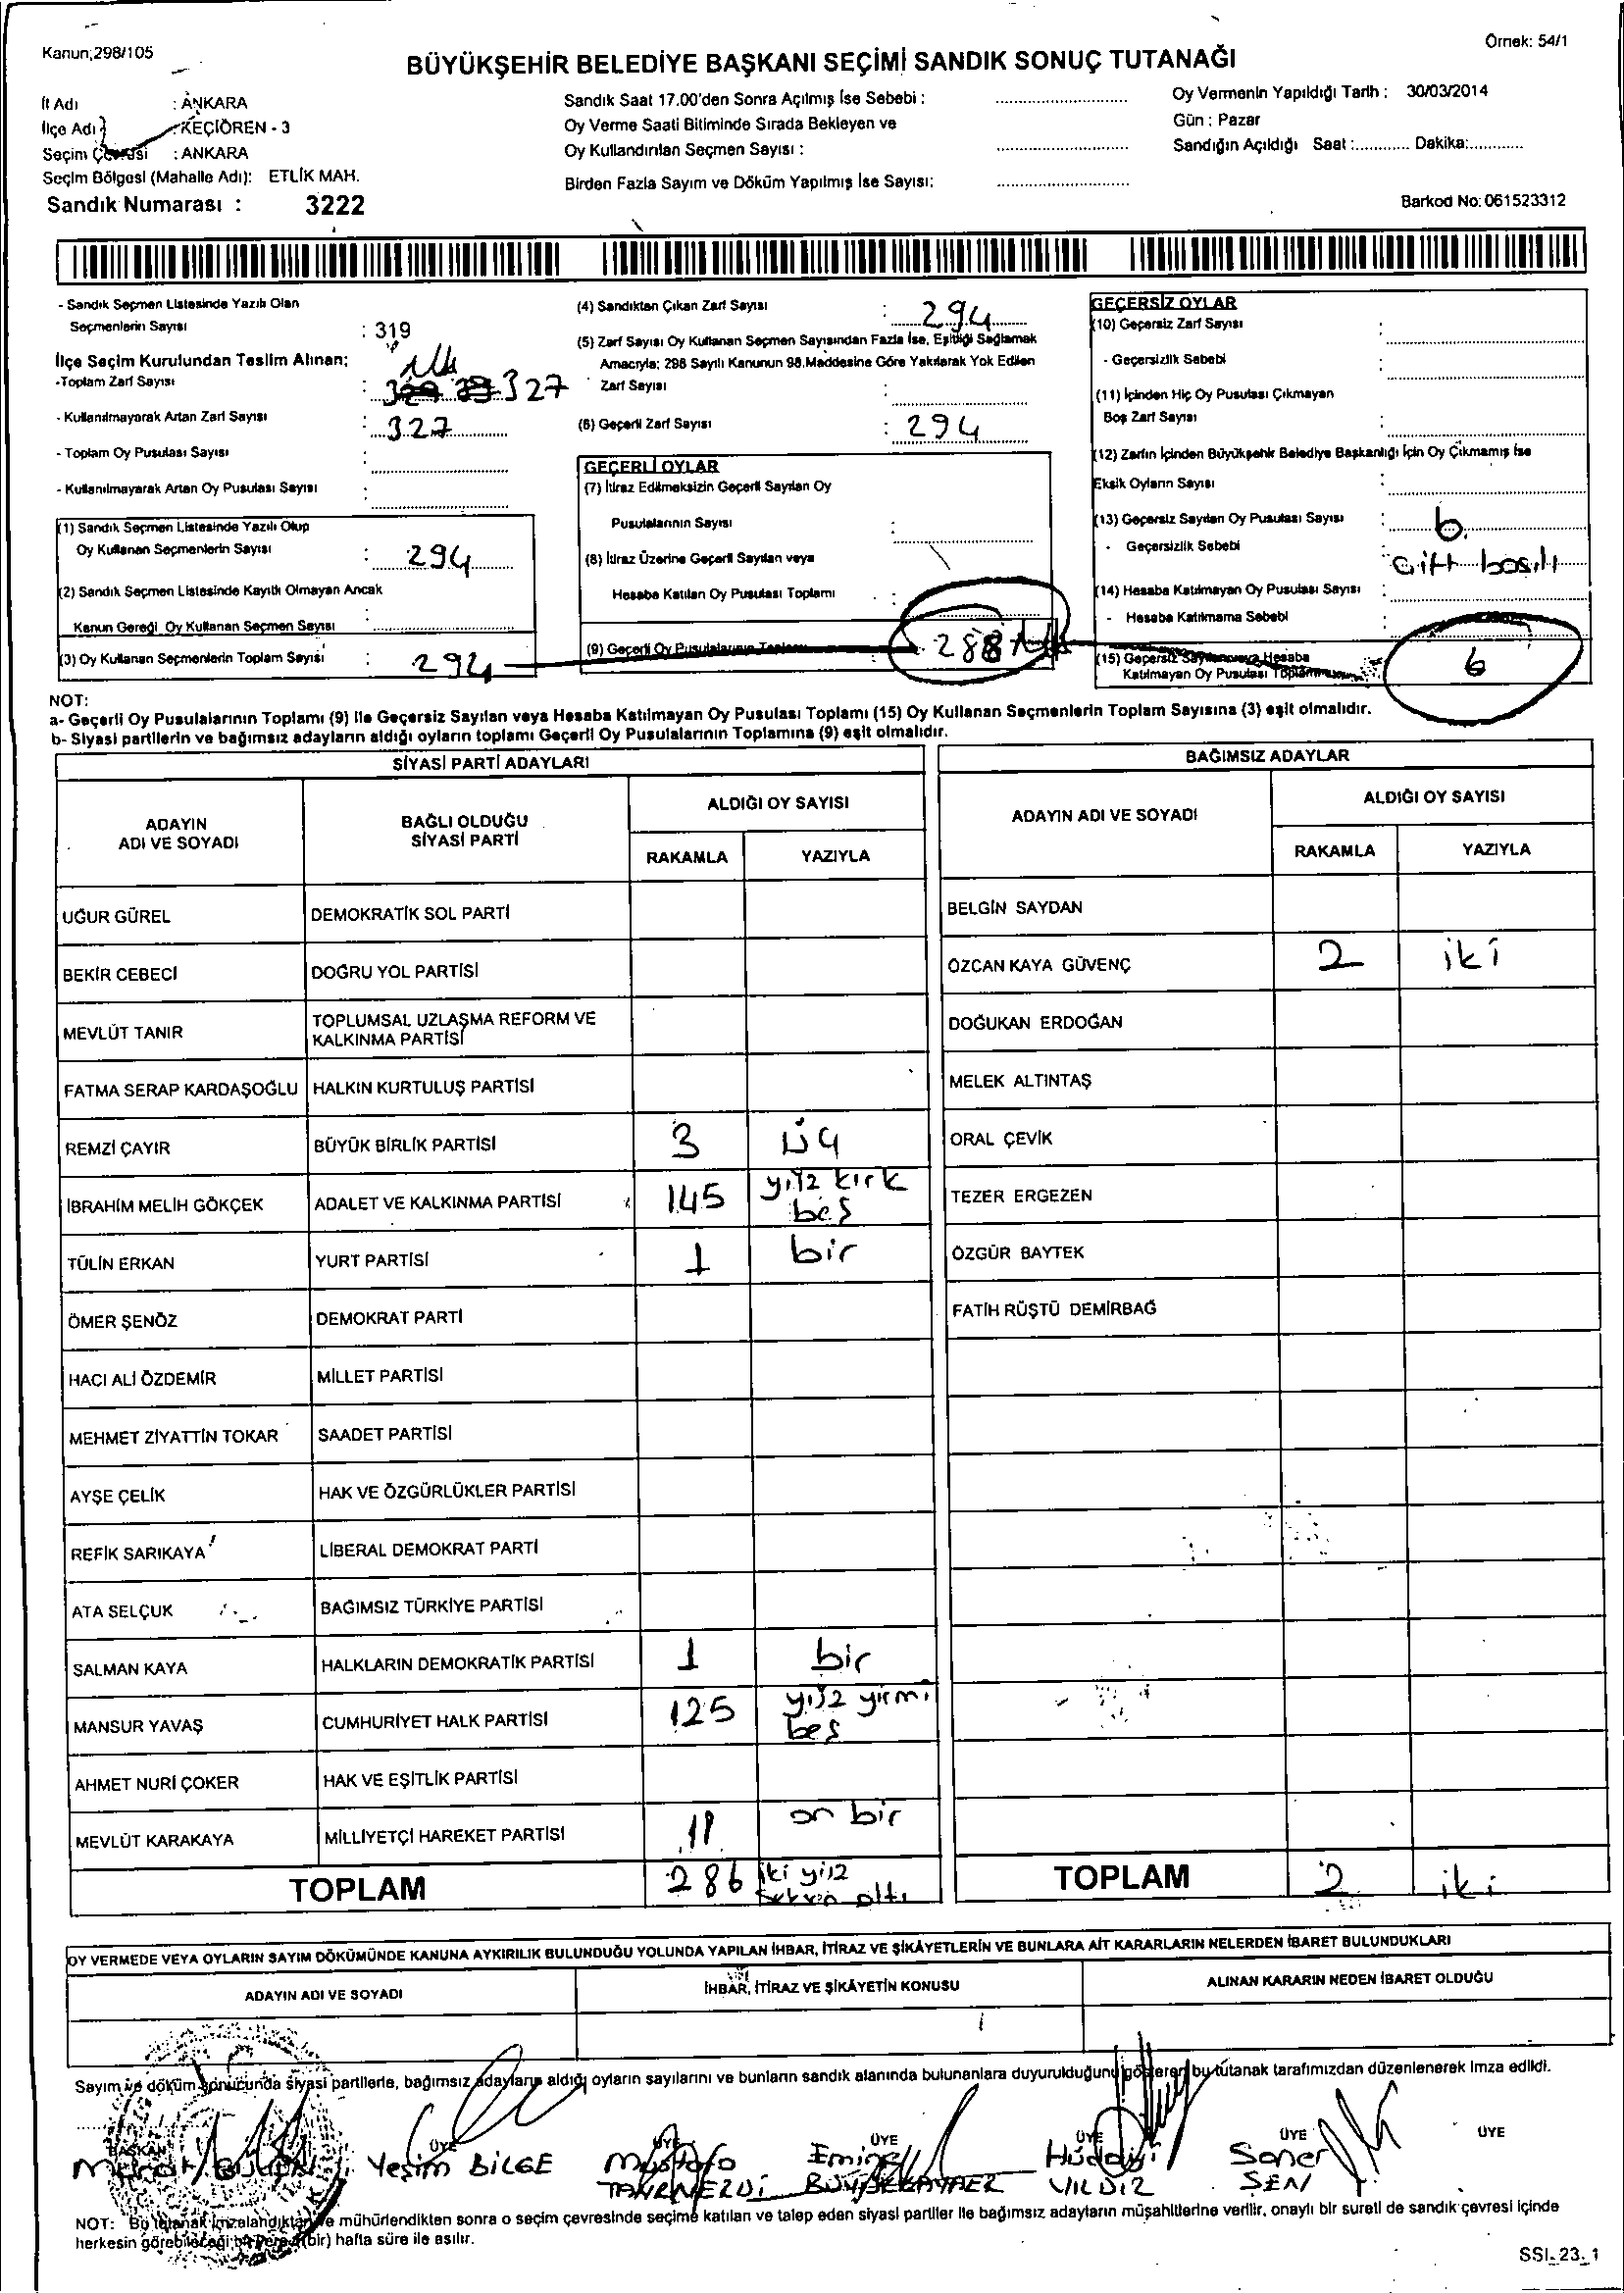 Kanun;298/105
Örnek: 54/1
BÜYÜKŞEHİR BELEDİYE BAŞKANI SEÇİMİ SANDIK SONUÇ TUTANAĞI
İl Adı : ANKARA
İlçe Adı : KEÇİÖREN - 3
Seçim Çevresi : ANKARA
Seçim Bölgesi (Mahalle Adı): ETLİK MAH.
Sandık Numarası : 3222
Sandık Saat 17.00'den Sonra Açılmış İse Sebebi :
Oy Verme Saati Bitiminde Sırada Bekleyen ve
Oy Kullandırılan Seçmen Sayısı :
Birden Fazla Sayım ve Döküm Yapılmış İse Sayısı:
Oy Vermenin Yapıldığı Tarih : 30/03/2014
Gün : Pazar
Sandığın Açıldığı Saat :............ Dakika:............
Barkod No: 061523312
- Sandık Seçmen Listesinde Yazılı Olan
Seçmenlerin Sayısı : 319
İlçe Seçim Kurulundan Teslim Alınan;
-Toplam Zarf Sayısı : 327
- Kullanılmayarak Artan Zarf Sayısı : 327
- Toplam Oy Pusulası Sayısı :
- Kullanılmayarak Artan Oy Pusulası Sayısı :
(1) Sandık Seçmen Listesinde Yazılı Olup
Oy Kullanan Seçmenlerin Sayısı : 294
(2) Sandık Seçmen Listesinde Kayıtlı Olmayan Ancak
Kanun Gereği Oy Kullanan Seçmen Sayısı
(3) Oy Kullanan Seçmenlerin Toplam Sayısı : 294
(4) Sandıktan Çıkan Zarf Sayısı : 294
(5) Zarf Sayısı Oy Kullanan Seçmen Sayısından Fazla İse, Eşitliği Sağlamak
Amacıyla; 298 Sayılı Kanunun 98.Maddesine Göre Yakılarak Yok Edilen
Zarf Sayısı :
(6) Geçerli Zarf Sayısı : 294
GEÇERLİ OYLAR
(7) İtiraz Edilmeksizin Geçerli Sayılan Oy
Pusulalarının Sayısı :
(8) İtiraz Üzerine Geçerli Sayılan veya
Hesaba Katılan Oy Pusulası Toplamı :
(9) Geçerli Oy Pusulalarının Toplamı 288
GEÇERSİZ OYLAR
(10) Geçersiz Zarf Sayısı :
- Geçersizlik Sebebi :
(11) İçinden Hiç Oy Pusulası Çıkmayan
Boş Zarf Sayısı :
(12) Zarfın İçinden Büyükşehir Belediye Başkanlığı İçin Oy Çıkmamış İse
Eksik Oyların Sayısı :
(13) Geçersiz Sayılan Oy Pusulası Sayısı : 6
- Geçersizlik Sebebi : Çift basılı
(14) Hesaba Katılmayan Oy Pusulası Sayısı :
- Hesaba Katılmama Sebebi
(15) Geçersiz Sayılan veya Hesaba
Katılmayan Oy Pusulası Toplamı 6
NOT:
a- Geçerli Oy Pusulalarının Toplamı (9) ile Geçersiz Sayılan veya Hesaba Katılmayan Oy Pusulası Toplamı (15) Oy Kullanan Seçmenlerin Toplam Sayısına (3) eşit olmalıdır.
b- Siyasi partilerin ve bağımsız adayların aldığı oyların toplamı Geçerli Oy Pusulalarının Toplamına (9) eşit olmalıdır.
SİYASİ PARTİ ADAYLARI
ADAYIN
ADI VE SOYADI
BAĞLI OLDUĞU
SİYASİ PARTİ
ALDIĞI OY SAYISI
RAKAMLA YAZIYLA
UĞUR GÜREL DEMOKRATİK SOL PARTİ
BEKİR CEBECİ DOĞRU YOL PARTİSİ
MEVLÜT TANIR TOPLUMSAL UZLAŞMA REFORM VE
KALKINMA PARTİSİ
FATMA SERAP KARDAŞOĞLU HALKIN KURTULUŞ PARTİSİ
REMZİ ÇAYIR BÜYÜK BİRLİK PARTİSİ 3 üç
İBRAHİM MELİH GÖKÇEK ADALET VE KALKINMA PARTİSİ 145 yüz kırk
beş
TÜLİN ERKAN YURT PARTİSİ 1 bir
ÖMER ŞENÖZ DEMOKRAT PARTİ
HACI ALİ ÖZDEMİR MİLLET PARTİSİ
MEHMET ZİYATTİN TOKAR SAADET PARTİSİ
AYŞE ÇELİK HAK VE ÖZGÜRLÜKLER PARTİSİ
REFİK SARIKAYA LİBERAL DEMOKRAT PARTİ
ATA SELÇUK BAĞIMSIZ TÜRKİYE PARTİSİ
SALMAN KAYA HALKLARIN DEMOKRATİK PARTİSİ 1 bir
MANSUR YAVAŞ CUMHURİYET HALK PARTİSİ 125 yüz yirmi
beş
AHMET NURİ ÇOKER HAK VE EŞİTLİK PARTİSİ
MEVLÜT KARAKAYA MİLLİYETÇİ HAREKET PARTİSİ 11 on bir
TOPLAM 286 iki yüz
seksen altı
BAĞIMSIZ ADAYLAR
ADAYIN ADI VE SOYADI
ALDIĞI OY SAYISI
RAKAMLA YAZIYLA
BELGİN SAYDAN
ÖZCAN KAYA GÜVENÇ 2 iki
DOĞUKAN ERDOĞAN
MELEK ALTINTAŞ
ORAL ÇEVİK
TEZER ERGEZEN
ÖZGÜR BAYTEK
FATİH RÜŞTÜ DEMİRBAĞ
TOPLAM 2 iki
OY VERMEDE VEYA OYLARIN SAYIM DÖKÜMÜNDE KANUNA AYKIRILIK BULUNDUĞU YOLUNDA YAPILAN İHBAR, İTİRAZ VE ŞİKÂYETLERİN VE BUNLARA AİT KARARLARIN NELERDEN İBARET BULUNDUKLARI
ADAYIN ADI VE SOYADI İHBAR, İTİRAZ VE ŞİKÂYETİN KONUSU ALINAN KARARIN NEDEN İBARET OLDUĞU
Sayım ve döküm sonucunda siyasi partilerle, bağımsız adayların aldığı oyların sayılarını ve bunların sandık alanında bulunanlara duyurulduğunu gösteren bu tutanak tarafımızdan düzenlenerek imza edildi.
BAŞKAN ÜYE ÜYE ÜYE ÜYE ÜYE ÜYE
Murat Yeşim BİLGE Mustafa Emine Hüdayi Soner
TANRIVERDİ YILDIZ ŞEN
NOT: Bu tutanak imzalandıktan ve mühürlendikten sonra o seçim çevresinde seçime katılan ve talep eden siyasi partiler ile bağımsız adayların müşahitlerine verilir, onaylı bir sureti de sandık çevresi içinde
herkesin görebileceği bir yere 1(bir) hafta süre ile asılır.
SSI_23_1